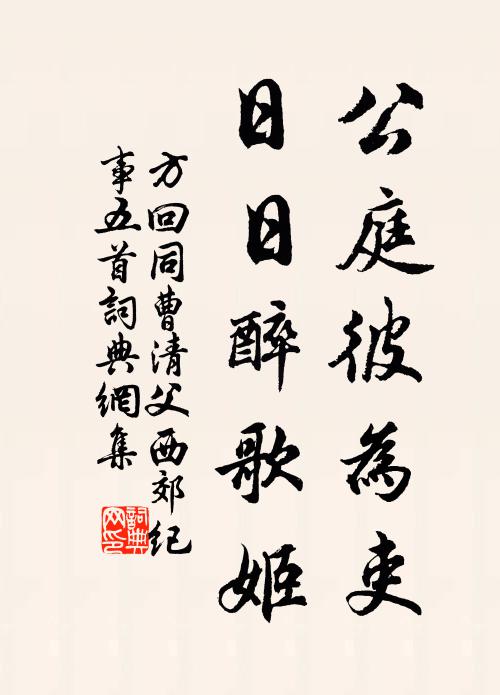 公庭彼為吏
日日醉歌姬
方回同曹清父西郊紀
事五首詞典網集
詞典
网印